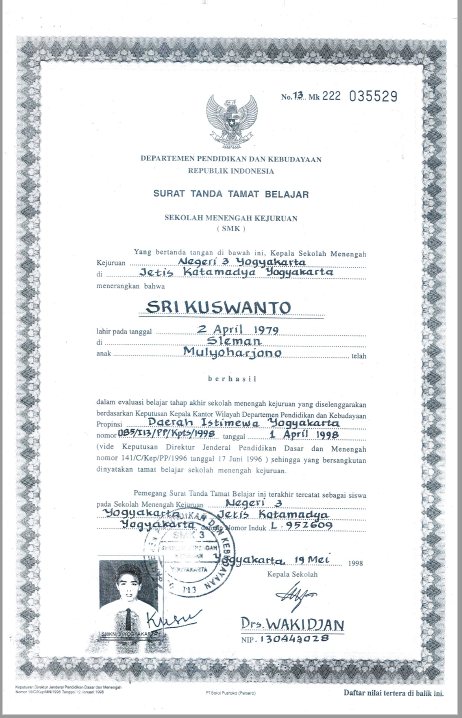 No. 13 Mk 222 035529
DEPARTEMEN PENDIDIKAN DAN KEBUDAYAAN
REPUBLIK INDONESIA
SURAT TANDA TAMAT BELAJAR
SEKOLAH MENENGAH KEJURUAN
( SMK )
Yang bertanda tangan di bawah ini, Kepala Sekolah Menengah
Kejuruan Negeri 3 Yogyakarta
di Jetis Kotamadya Yogyakarta
menerangkan bahwa
SRI KUSWANTO
lahir pada tanggal 2 April 1979
di Sleman
anak Mulyoharjono telah
berhasil
dalam evaluasi belajar tahap akhir sekolah menengah kejuruan yang diselenggarakan
berdasarkan Keputusan Kepala Kantor Wilayah Departemen Pendidikan dan Kebudayaan
Propinsi Daerah Istimewa Yogyakarta
nomor 035/I13/PP/Kpts/1998 tanggal 1 April 1998
(vide Keputusan Direktur Jenderal Pendidikan Dasar dan Menengah
nomor 141/C/Kep/PP/1996 tanggal 17 Juni 1996 ) sehingga yang bersangkutan
dinyatakan tamat belajar sekolah menengah kejuruan.
Pemegang Surat Tanda Tamat Belajar ini terakhir tercatat sebagai siswa
pada Sekolah Menengah Kejuruan Negeri 3
Yogyakarta Jetis Kotamadya
Yogyakarta Nomor Induk L. 952609
SMK 3
YOGYAKARTA
I13
DAN KEBUDAYAAN
Yogyakarta, 19 Mei 1998
Kepala Sekolah
Drs. WAKIDJAN
NIP. 130443028
Keputusan Direktur Jenderal Pendidikan Dasar dan Menengah
PT Balai Pustaka (Persero)
Daftar nilai tertera di balik ini.